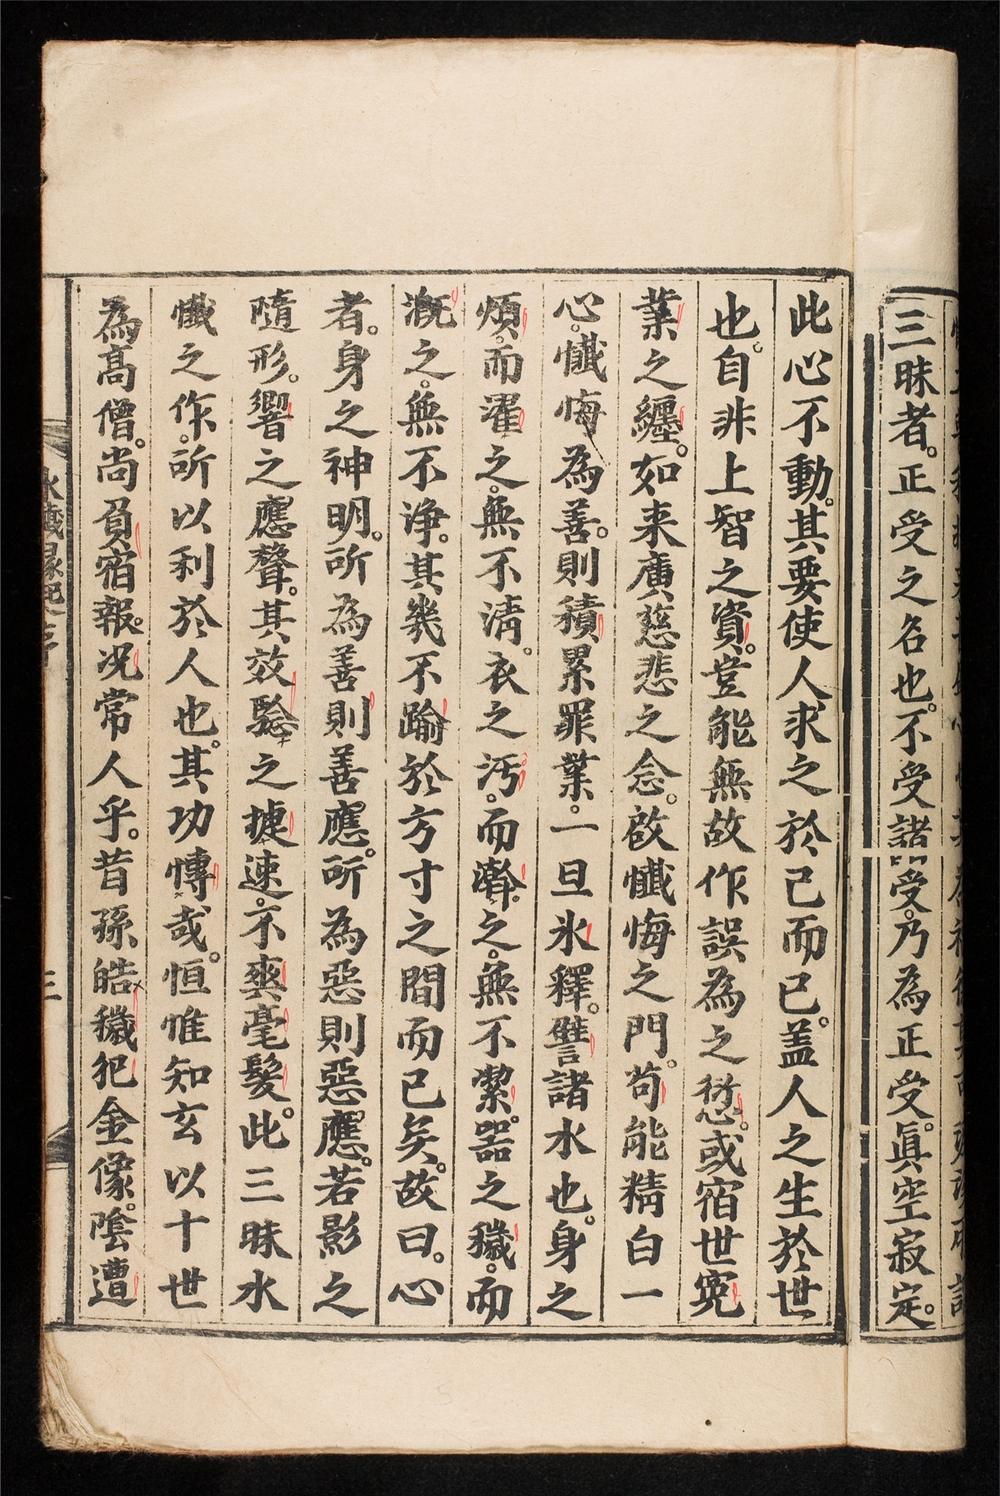 三昧者。正受之名也。不受諸受。乃為正受。眞空寂定。
此心不動。其要使人求之於己而已。盖人之生於世
也。自非上智之資。豈能無故作誤為之愆。或宿世寃
業之纏。如来廣慈悲之念。啟懺悔之門。苟能精白一
心。懺悔為善。則積累罪業。一旦氷釋。譬諸水也。身之
煩。而濯之。無不清。衣之污。而澣之。無不潔。器之穢。而
溉之。無不浄。其幾不踰於方寸之間而已矣。故曰。心
者。身之神明。所為善則善應。所為惡則惡應。若影之
隨形。響之應聲。其效驗之捷速。不爽毫髮。此三昧水
懺之作。所以利於人也。其功慱哉。恒惟知玄以十世
為髙僧。尚負宿報。况常人乎。昔孫皓穢犯金像。陰遭
水懺緣起序
三